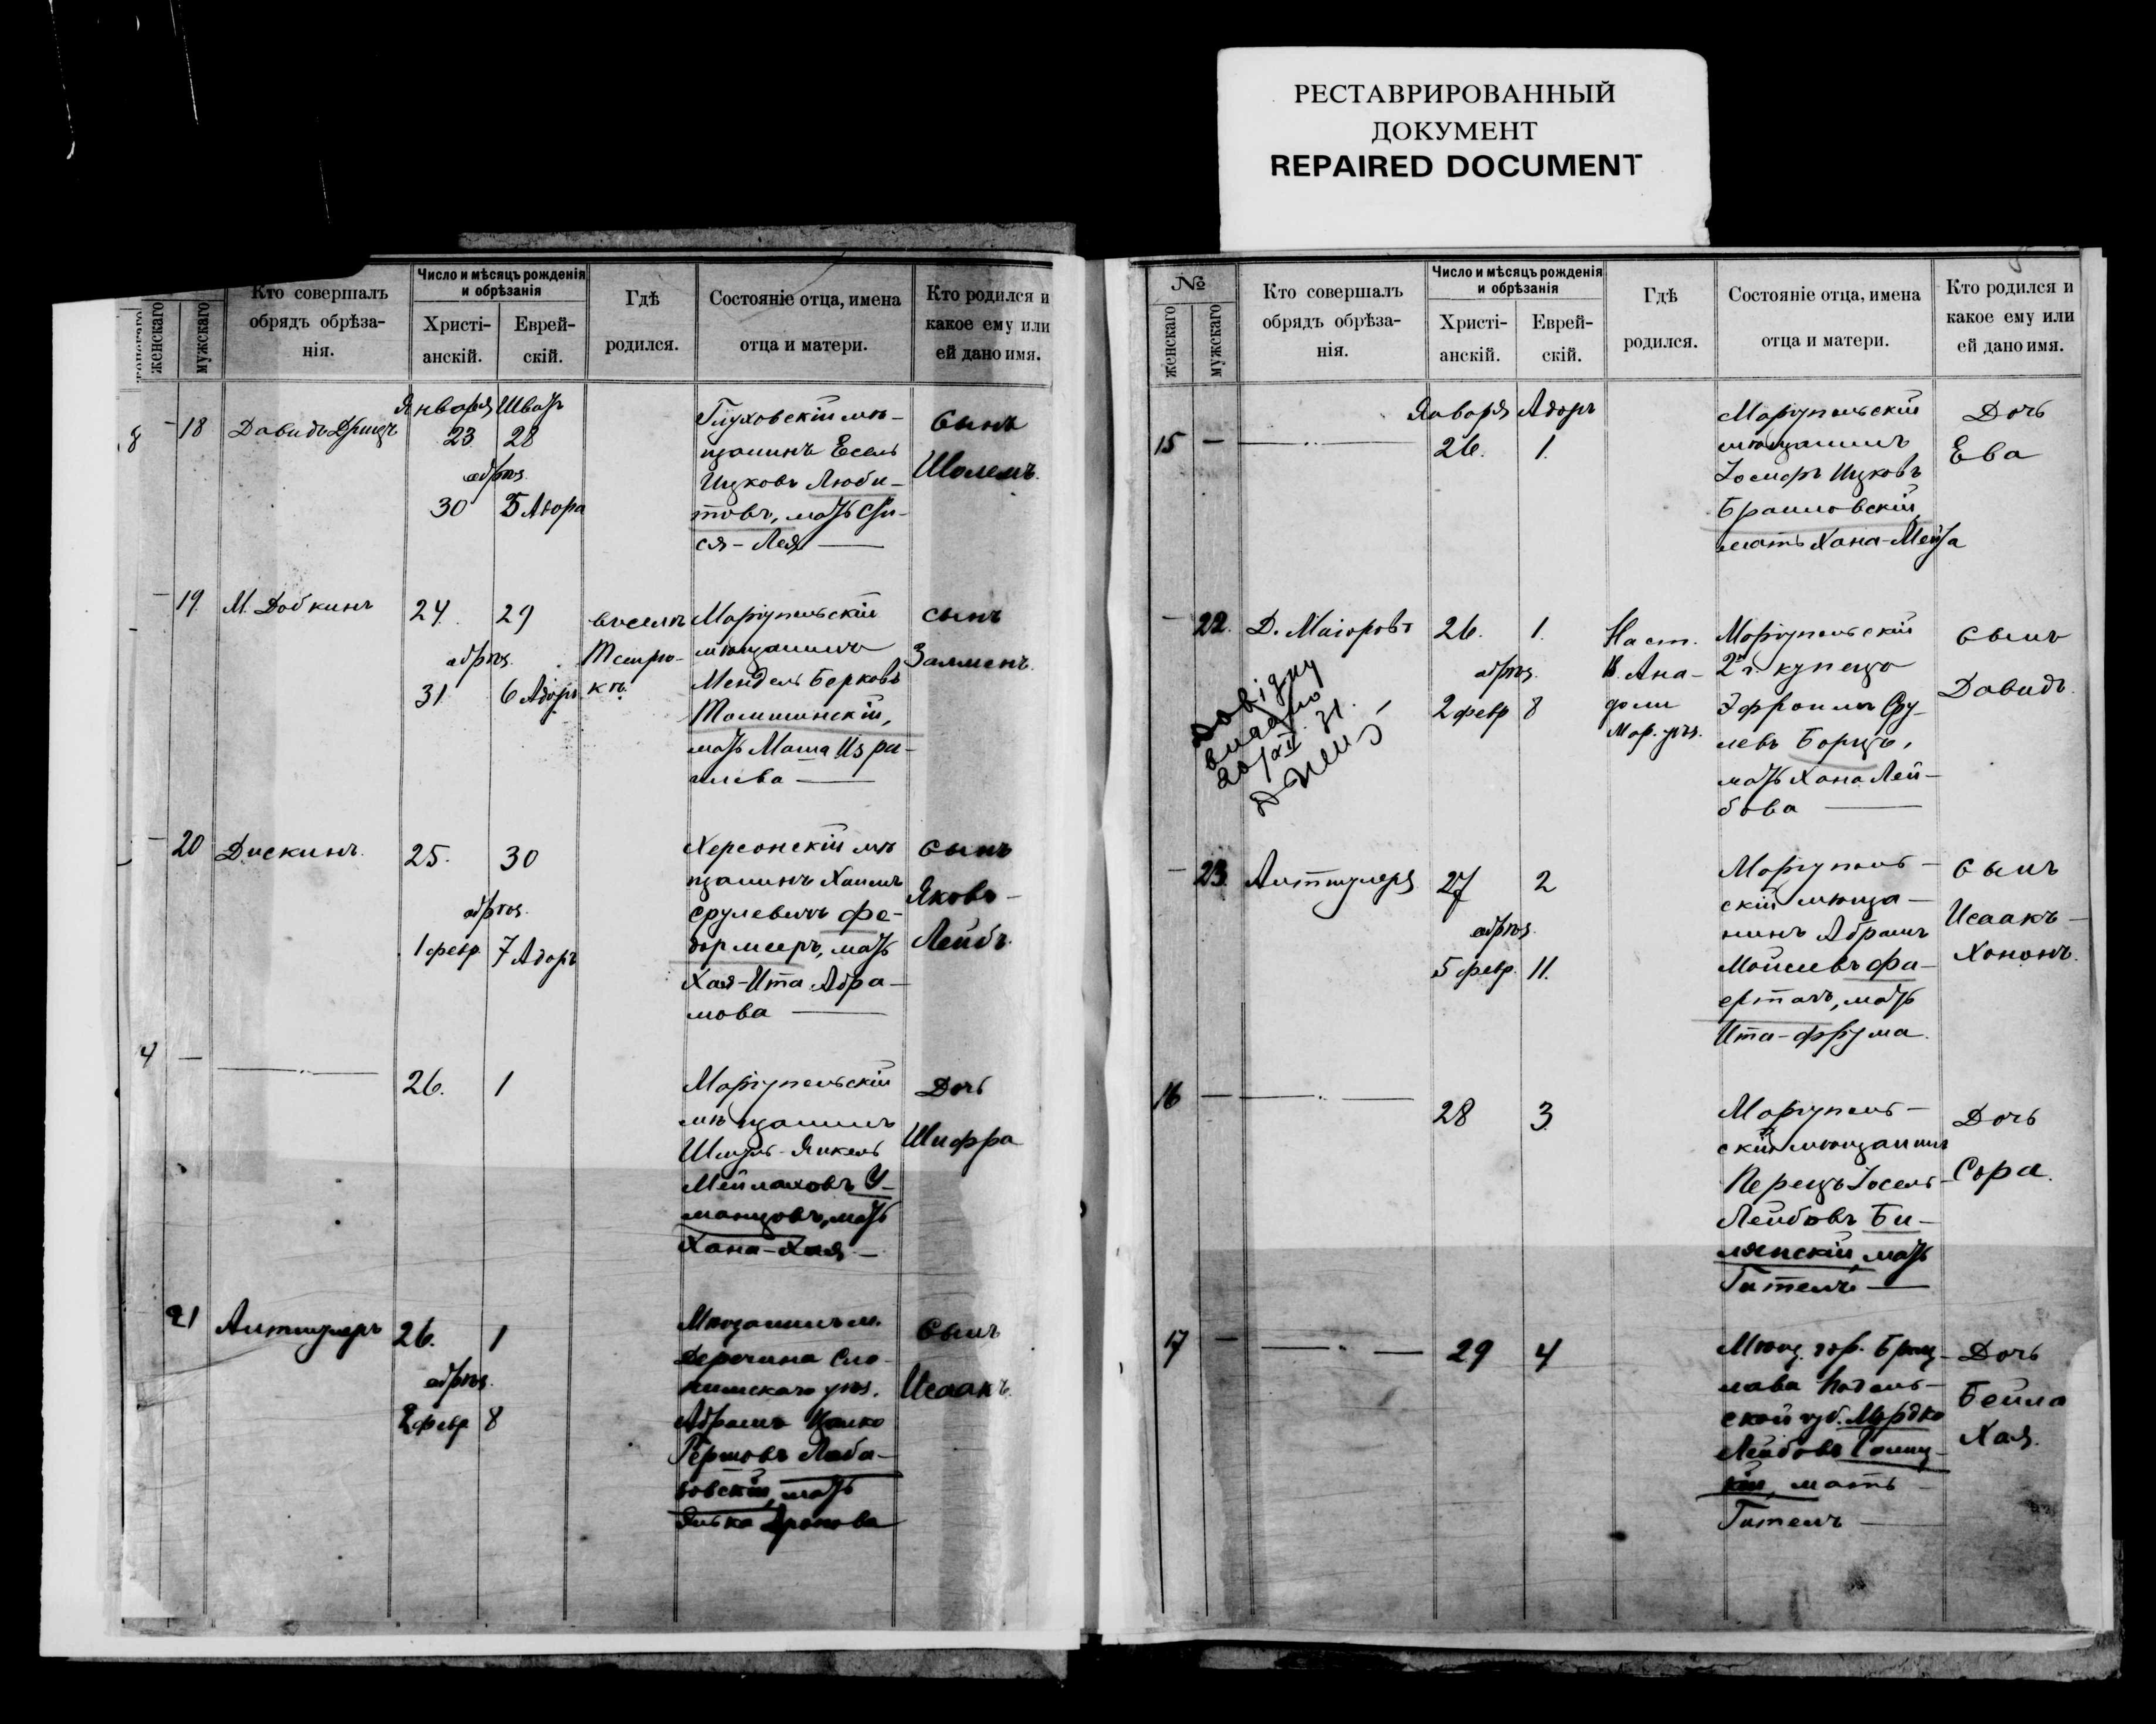 РЕСТАВРИРОВАННЫЙ
ДОКУМЕНТ
REPAIRED DOCUMENT
женскаго
мужскаго
Кто совершалъ
обрядъ обрѣза-
нія.
Число и мѣсяцъ рожденія
и обрѣзанія
Христі-
анскій.
Еврей-
скій.
Гдѣ
родился.
Состояніе отца, имена
отца и матери.
Кто родился и
какое ему или
ей дано имя.
8
18
Давидъ
Января
23
обрѣз.
30
Шватъ
28
5 Адора
Глуховскій мѣ-
щанинъ Есель
Ицковъ Люби-
товъ, мать
ся-Лея
Сынъ
Шолемъ.
19
М. Добкинъ
24
обрѣз.
31
29
6 Адоръ
въ селѣ
Маріупольскій
мѣщанинъ
Мендель Берковъ
мать Маша Изра-
илева
сынъ
Залменъ.
20
Дискинъ.
25.
обрѣз.
1 февр.
30
7 Адоръ
Херсонскій мѣ
щанинъ Хаимъ
Срулевичъ Фе-
дормееръ, мать
Хая-Ита Абра-
мова
Сынъ
Яковъ-
Лейбъ.
4
26.
1
Маріупольскій
мѣщанинъ
Шмуль-Янкель
Мейлаховъ У-
манцовъ, мать
Хана-Хая
Дочь
Шифра
21
Антшулеръ
26.
обрѣз.
2 февр
1
8
Мѣщанинъ м.
Деречина Сло-
нимскаго уѣз.
Абрамъ
Гершовъ Лаба-
зовскій, мать
Сынъ
Исаакъ.
№
женскаго
мужскаго
Кто совершалъ
обрядъ обрѣза-
нія.
Число и мѣсяцъ рожденія
и обрѣзанія
Христі-
анскій.
Еврей-
скій.
Гдѣ
родился.
Состояніе отца, имена
отца и матери.
Кто родился и
какое ему или
ей дано имя.
15
Января
26.
Адоръ
1.
Маріупольскій
мѣщанинъ
Іосифъ Ицковъ
Браиловскій
мать Хана-Мейта
Дочь
Ева
22.
Д. Маіоровъ
26.
обрѣз.
2 февр
1.
8
Мар. уѣз.
Маріупольскій
2й г. купецъ
Эфроимъ Сру-
левъ Борщъ,
мать Хана Лей-
бова
Сынъ
Давидъ.
Довідку
видано
20/XII 31.
23.
Антшулеръ
27
обрѣз.
5 февр.
2
11.
Маріуполь-
скій мѣща-
нинъ Абрамъ
Моисеевъ Фа-
ерталъ, мать
Ита-Фрума
Сынъ
Исаакъ-
Хононъ.
16
28
3
Маріуполь-
скій мѣщанинъ
Перецъ-Іосель-
Лейбовъ Би-
лянскій, мать
Гителъ
Дочь
Сора.
17
29
4
Мѣщ. гор. Брац-
лава Подоль-
ской губ. Мордко
Лейбовъ
мать
Гителъ
Дочь
Бейла
Хая.